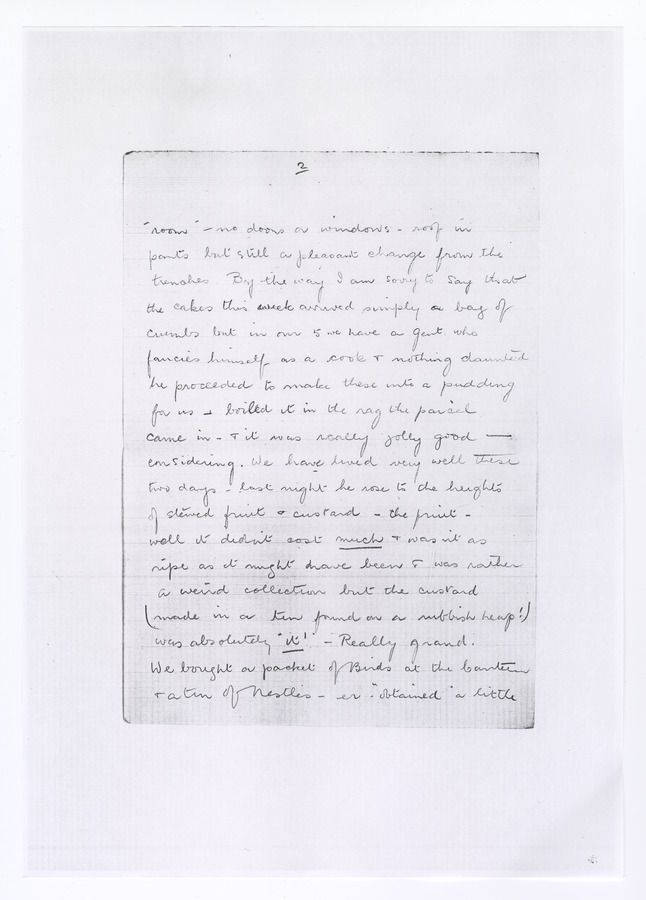 2
"room" - no doors or windows - roof in
parts but still a pleasant change from the
trenches. By the way I am sorry to say that
the cakes this week arrived simply a bag of
crumbs but in our 5 we have a gent. who
fancies himself as a cook & nothing daunted
he proceeded to make these into a pudding
for us & boiled it in the rag the parcel
came in - & it was really jolly good —
considering. We have lived very well these
two days - last night he rose to the heights
of stewed fruit & custard - the fruit -
well it didn't cost much & wasn't as
ripe as it might have been & was rather
a weird collection but the custard
(made in a tin found on a rubbish heap!)
was absolutely "it"! - Really grand.
We bought a packet of Birds at the Canteen
& a tin of Nestles - er "obtained" a little